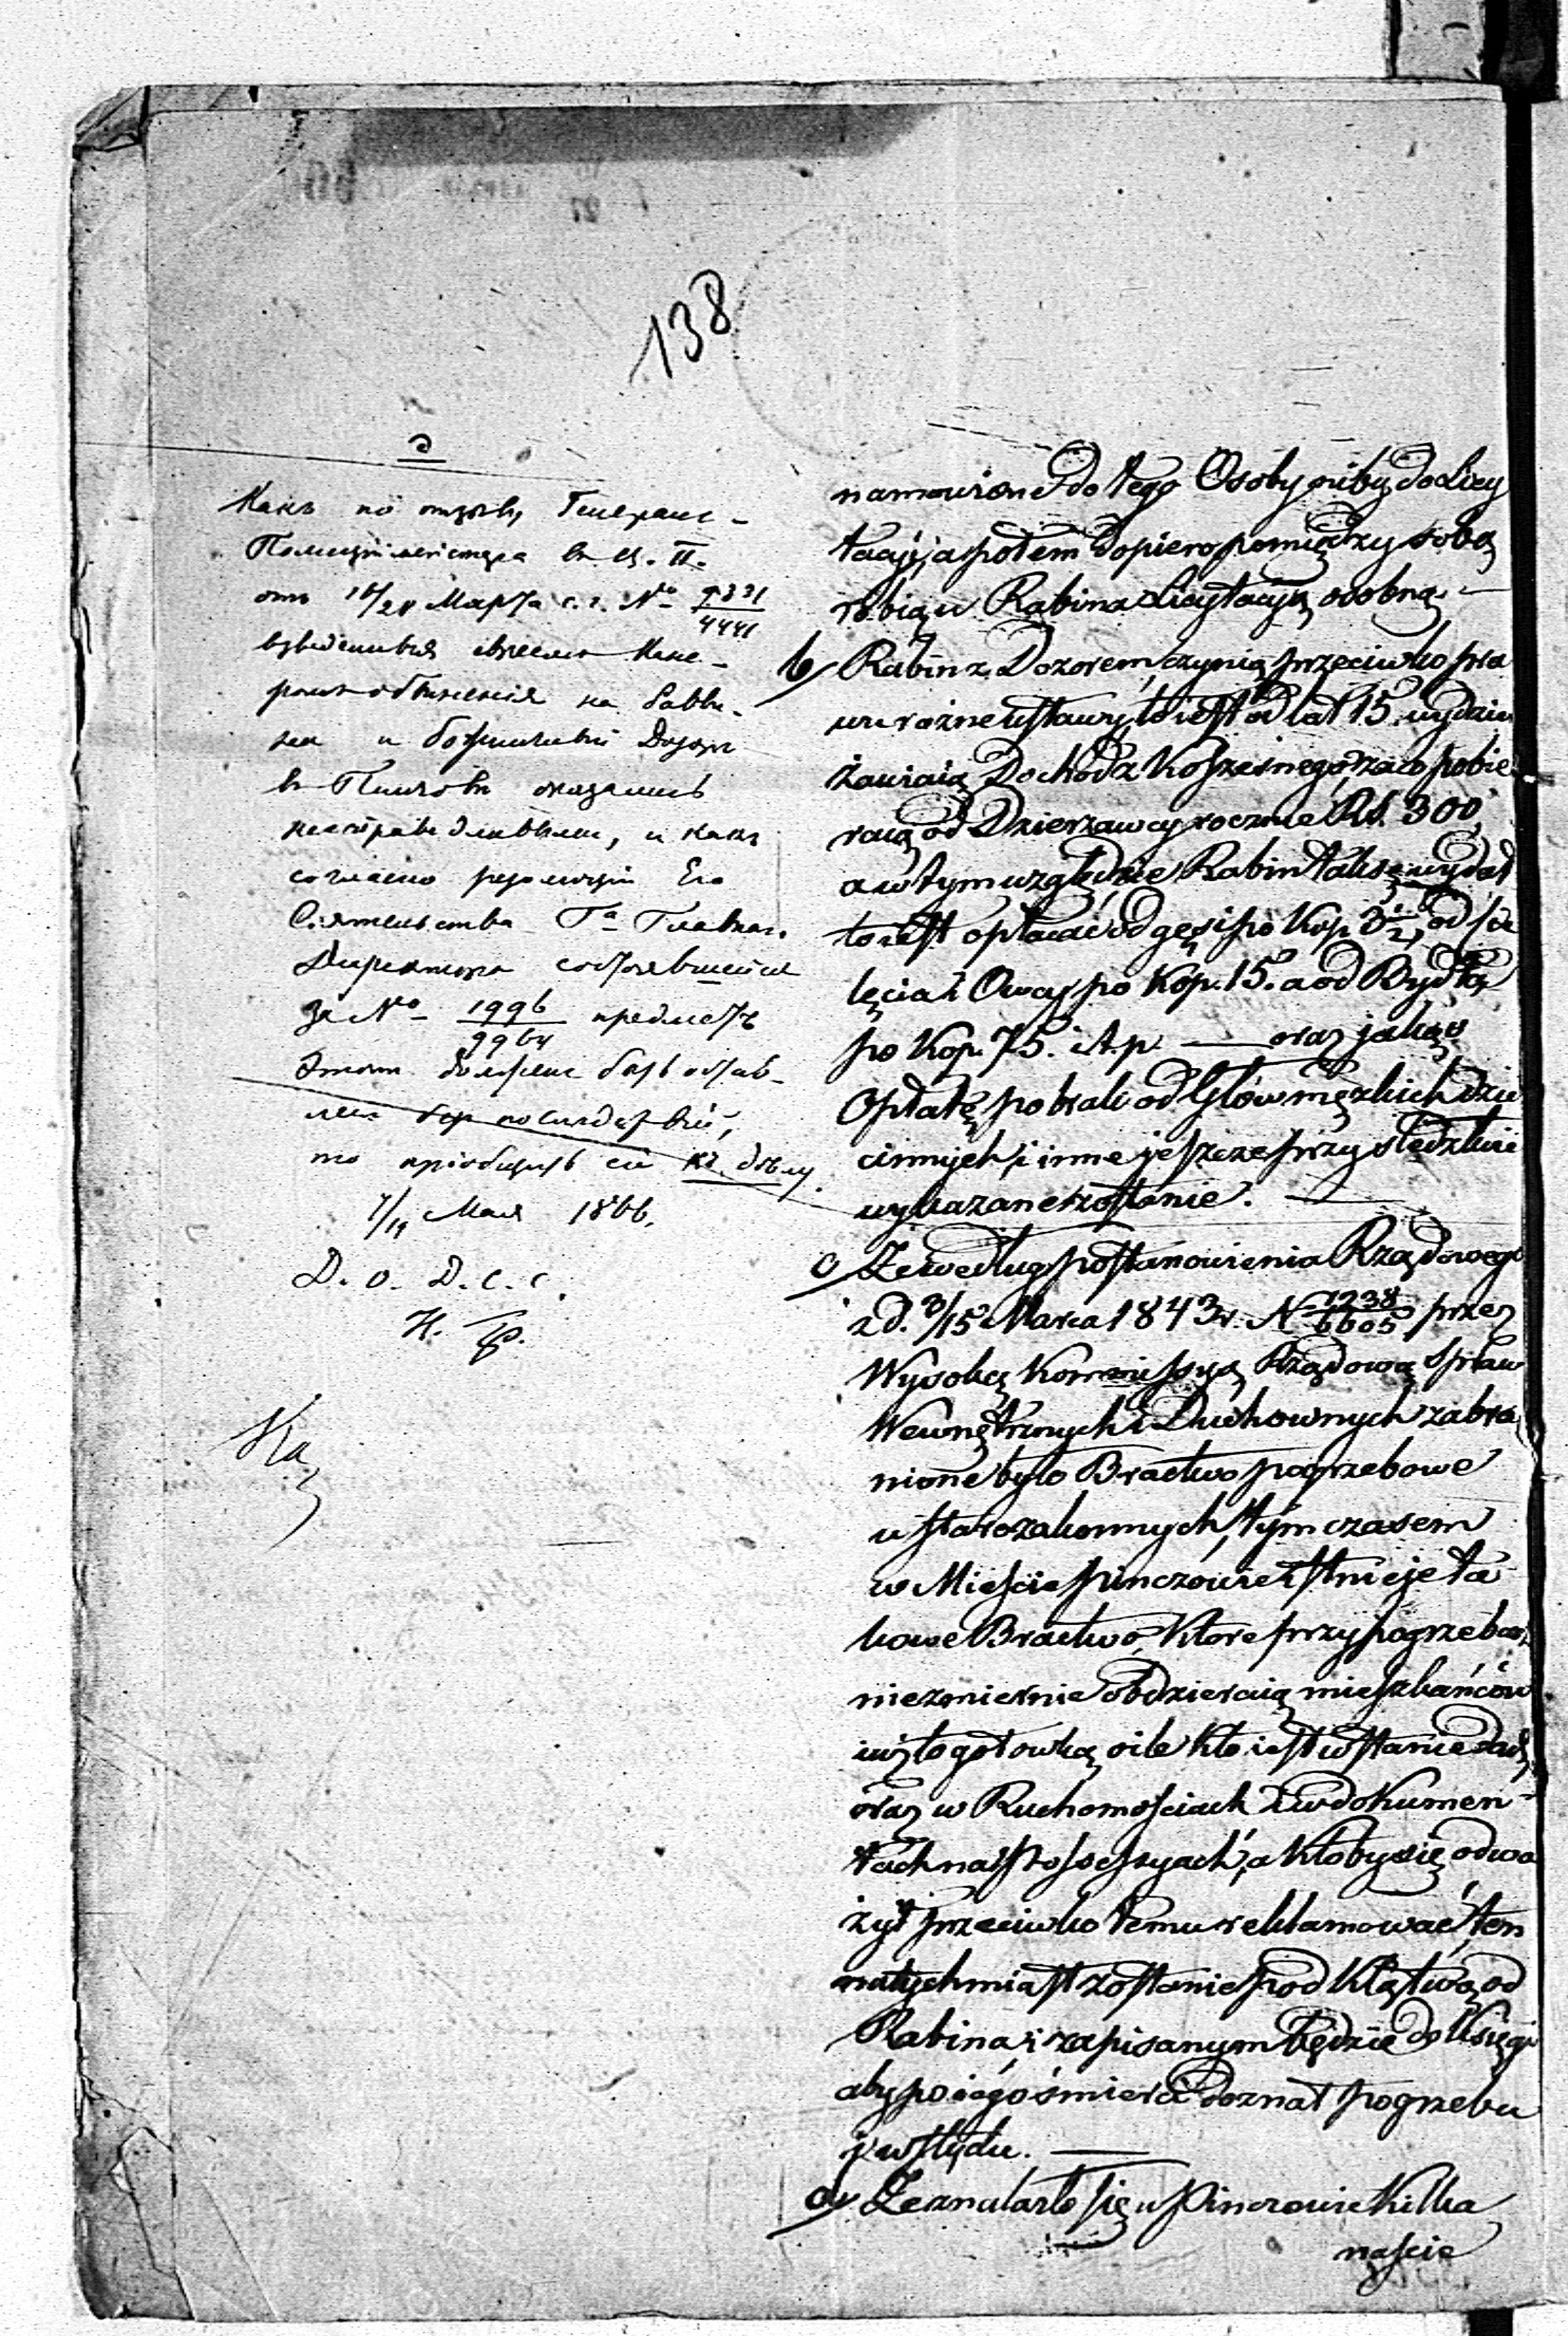 138
Какъ по отзыву Генералъ-
Полицiймейстера въ Ц. П.
отъ 16/28 Марта с. г. № 9331/4441
взведенныя
обвиненiя на Равви-
на и божничный Дозоръ
въ Пинчовѣ оказались
несправедливыми, и какъ
согласно резолюцiи Его
Сiятельства Гª Главнаго
Директора состоявшейся
за № 1996/9964 предметъ
этотъ долженъ быть остав-
ленъ безъ послѣдствiй,
то прiобщить къ дѣлу.
7/19 Мая 1866.
Д. О. Д. С. С.
namówione do tego Osoby niby do Licy
tacyi, a potem dopiero pomiędzy sobą
robią u Rabina Licytacyą osobną —
b/ Rabin z Dozorem czynią przeciwko pra
wu rożne ustawy, to iest od lat 15 wydzier
żawiaią Dochód z Koszernego, za co pobie
raią od Dzierzawcy rocznie Rs. 300
a w tym względzie Rabin taksę wydał
to iest opłacać od gęsi po Kop. 3½, od cie
lęcia i Owcy po Kop. 15. a od Bydła
po Kop. 75. i t. p. — oraz jakąś
Opłatę pobrali od Głów męzkich dzie
cinnych, i inne jeszcze przy śledztwie
wykazane zostanie. —
c/ Że według postanowienia Rządowego
z d. 3/15 Marca 1843 r. N 1238/6605 przez
Wysoką Kommissyą Rządową Spraw
Wewnętrznych i Duchownych zabro
nione było Bractwo pogrzebowe
u starozakonnych, tym czasem
w Mieście Pinczowie istnieje ta
kowe Bractwo, które przy pogrzebach
niezmiernie obdzieraią mieszkańców
już to gotowką o ile kto iest w stanie dać,
oraz w Ruchomościach i w dokumen-
tach na Possessyach, a ktoby się odwa
żył przeciwko temu reklamować, ten
natychmiast zostanie pod Klątwą od
Rabina i zapisanym będzie do Księgi
aby po iego śmierci doznał pogrzebu
i wstydu. —
d/ Że znalazło się w Pinczowie kilka
naście